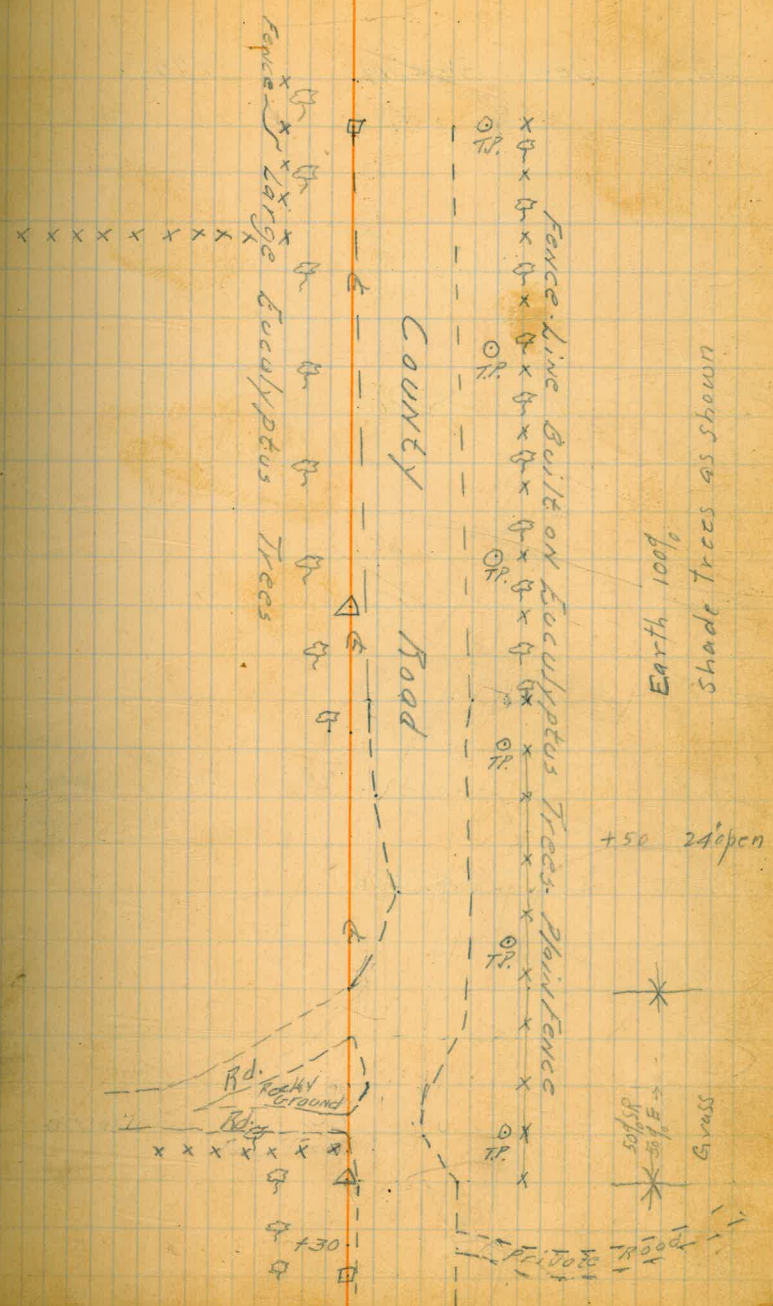 Fence - Large Eucalyptus Trees
County Road
T.P.
T.P.
T.P.
T.P.
T.P.
T.P.
Fence-Line Built on Euculyptus Trees - Plain Fence
Earth 100%
Shade Trees as shown
+50 24" open
Rd.
Rocky
Ground
Rd.
50% SR
50% E
Grass
+30
Private Road